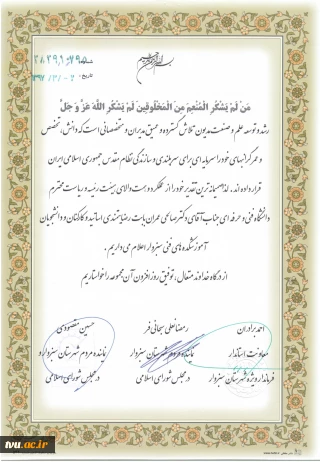 بسم الله الرحمن الرحیم
شماره
تاریخ
مَن لَم یَشکُرِ المُنعِمَ مِنَ المَخلوقینَ لَم یَشکُرِ اللهَ عَزَّ وَ جَلَّ
رشد و توسعه علم و صنعت مدیون تلاش گسترده و عمیق مدیران و متخصصانی است که دانش، تخصص
و عمر گرانبهای خود را سرمایه ای برای سربلندی و سازندگی نظام مقدس جمهوری اسلامی ایران
قرار داده اند، لذا صمیمانه ترین تقدیر خود را از عملکرد و همت والای هیئت رئیسه و ریاست محترم
دانشگاه فنی و حرفه ای جناب آقای دکتر صالحی عمران بابت رضایتمندی اساتید و کارکنان و دانشجویان
آموزشکده های فنی سبزوار اعلام می داریم.
از درگاه خداوند متعال، توفیق روزافزون آن مجموعه را خواستاریم
احمد برادران
معاونت استاندار
فرماندار ویژه شهرستان سبزوار
رمضانعلی سبحانی فر
نماینده مردم شهرستان سبزوار
در مجلس شورای اسلامی
حسین مقصودی
نماینده مردم شهرستان سبزوار و
در مجلس شورای اسلامی
tvu.ac.ir